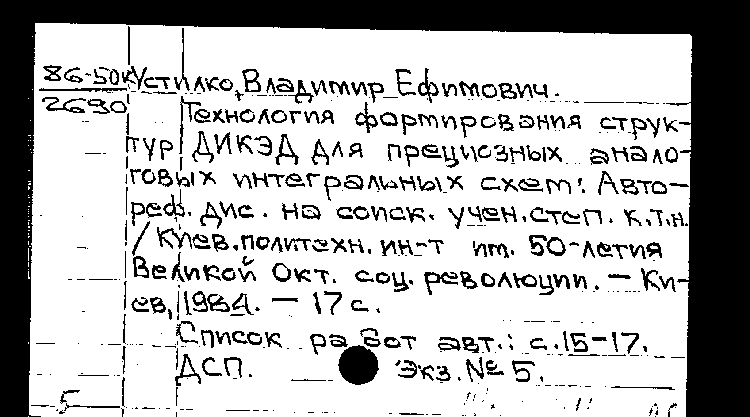 86-50к Устилко, Владимир Ефимович.
2690 Технология формирования струк-
тур ДИКЭД для прецизионных анало-
говых интегральных схем: Авто-
реф. дис. на соиск. учен. степ. к.т.н.
/ Киев. политехн. ин-т им. 50-летия
Великой Окт. соц. революции. - Ки-
ев, 1984. - 17 с.
Список работ авт.: с. 15-17.
ДСП. Экз. № 5.
5